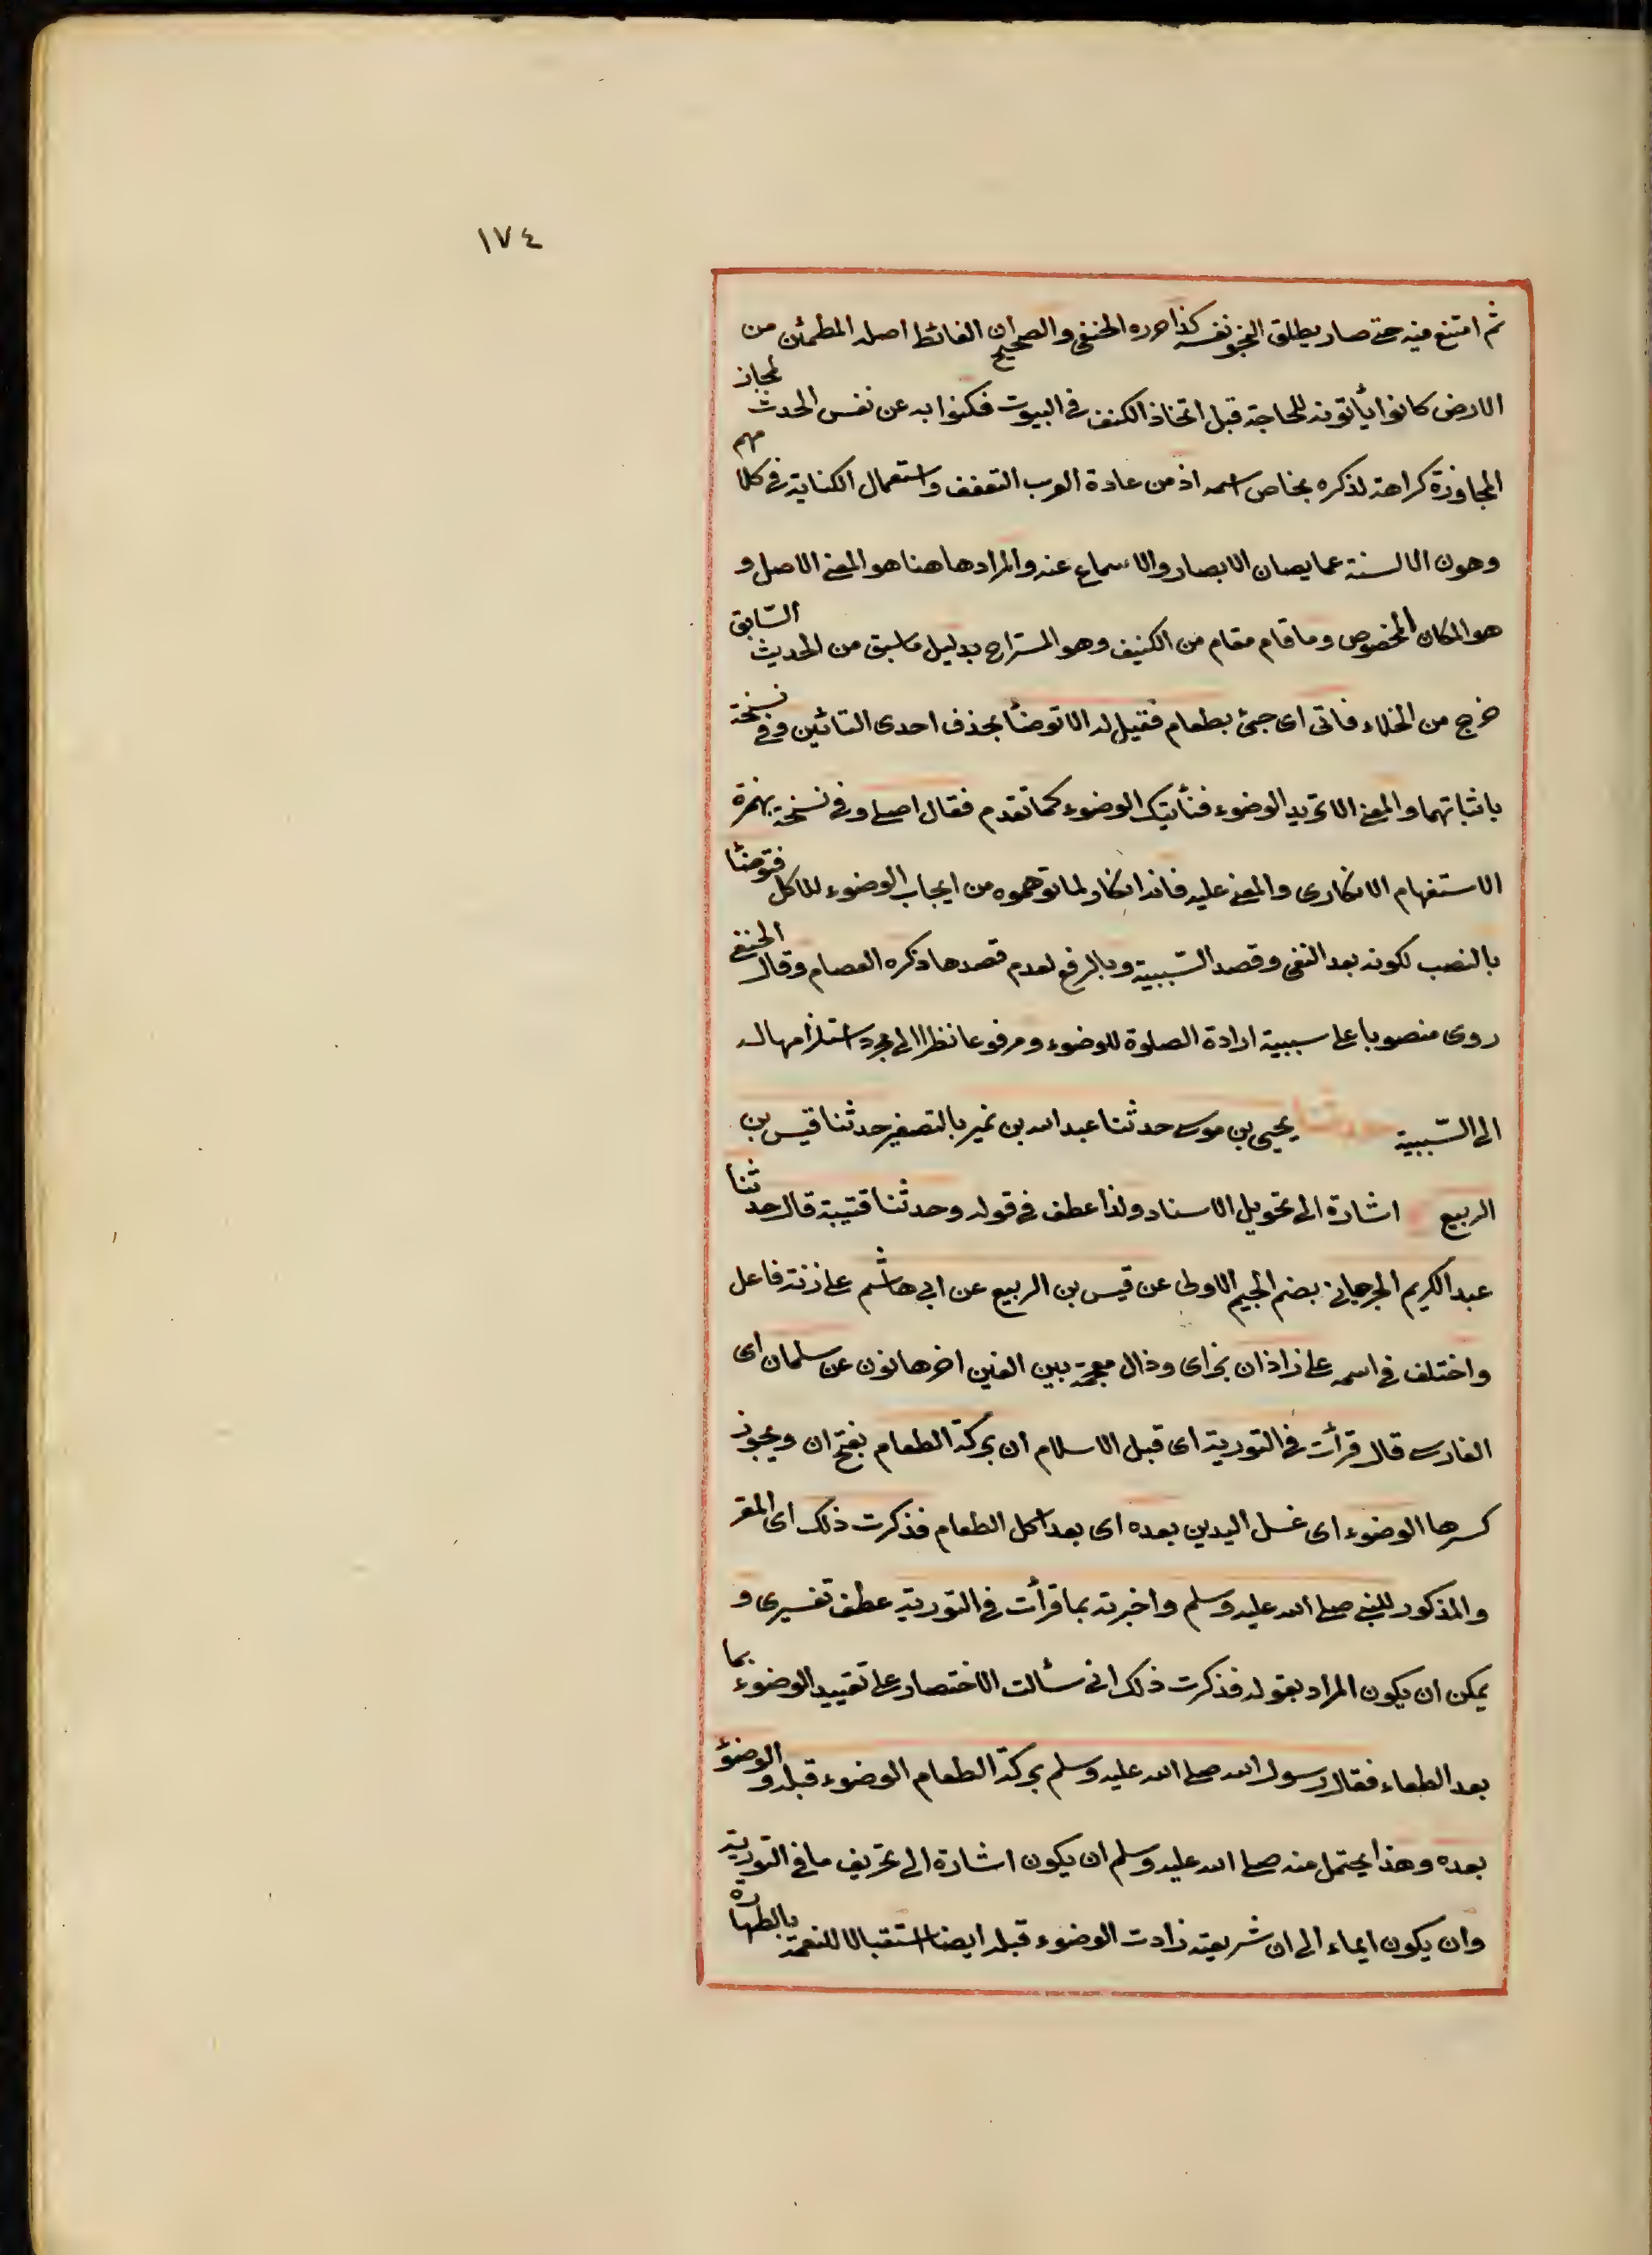 ١٧٤
ثم امتنع فيه حتى صار يطلق النجو نفسه كذا حرره الحنفى والصحيح ان الغائط اصله المطمئن من
الارض كانوا يأتونه للحاجة قبل اتخاذ الكنف فى البيوت فكنوا به عن نفس الحدث لمجاز
المجاوزة كراهة لذكره بخاص اسمه اذ من عادة العرب التعفف واستعمال الكناية فى كلا مهم
وهون الالسنة عما يصان الابصار والاسماع عنه والمراد هاهنا هو المعنى الاصل و
هو المكان المخصوص وما قام مقام من الكنيف وهو المستراح بدليل ما سبق من الحديث السّابق
خرج من الخلاء فاتى اى جئ بطعام فقيل له الا توضأ بحذف احدى التائين وفى نسخة
باثباتهما والمعنى الا تريد الوضوء فنأتيك الوضوء كما تقدم فقال اصلى وفى نسخة بهمزة
الاستفهام الانكارى والمعنى عليه فانه انكار لما توهموه من ايجاب الوضوء للاكل فتوضأ
بالنصب لكونه بعد النفى وقصد السّببية وبالرفع لعدم قصدها ذكره العصام وقال الحنفى
روى منصوبا على سببية ارادة الصلوة للوضوء ومرفوعا نظرا الى مجرد استلزامها لـ
الى السّببية حدثنا يحيى بن موسى حدثنا عبد الله بن نمير بالتصغير حدثنا قيس بن
الربيع اشارة الى تحويل الاسناد ولذا عطف فى قوله وحدثنا قتيبة قال حدثنا
عبد الكريم الجرجانى بضم الجيم الاولى عن قيس بن الربيع عن ابى هاشم على زنة فاعل
واختلف فى اسمه على زاذان بزاى وذال معجمة بين الفين اخرها نون عن سلمان اى
الفارسى قال قرأت فى التورية اى قبل الاسلام ان بركة الطعام بفتح ان ويجوز
كسرها الوضوء اى غسل اليدين بعده اى بعد اكل الطعام فذكرت ذلك اى المقر
والمذكور للنبى صلى الله عليه وسلم واخبرته بما قرأت فى التورية عطف تفسيرى و
يمكن ان يكون المراد بقوله فذكرت ذلك انى سألت الاختصار على تقييد الوضوء بما
بعد الطعاء فقال رسول الله صلى الله عليه وسلم بركة الطعام الوضوء قبله والوضؤ
بعده وهذا يحتمل منه صلى الله عليه وسلم ان يكون اشارة الى تحريف ما فى التورية
وان يكون ايماء الى ان شريعته زادت الوضوء قبله ايضا استقبالا للنعمة بالطهارة